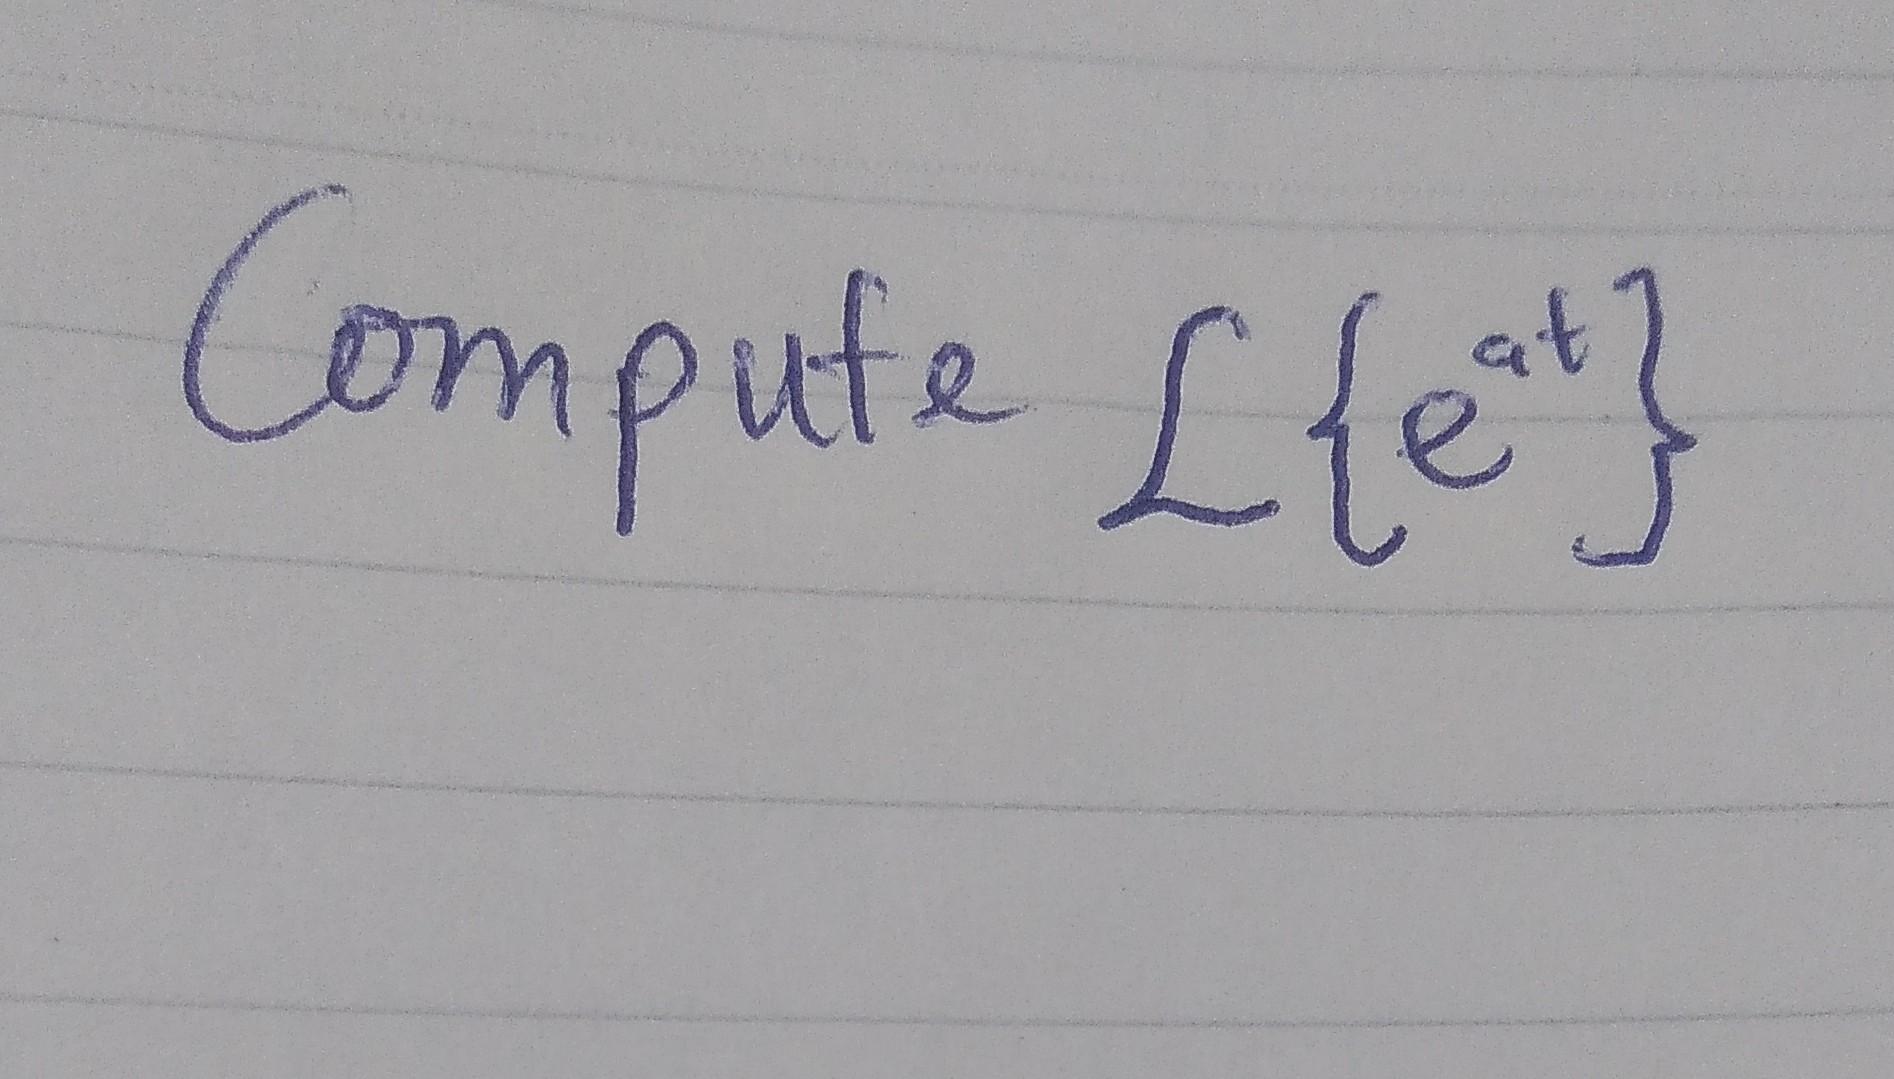 Compute ℒ{e^{at}}